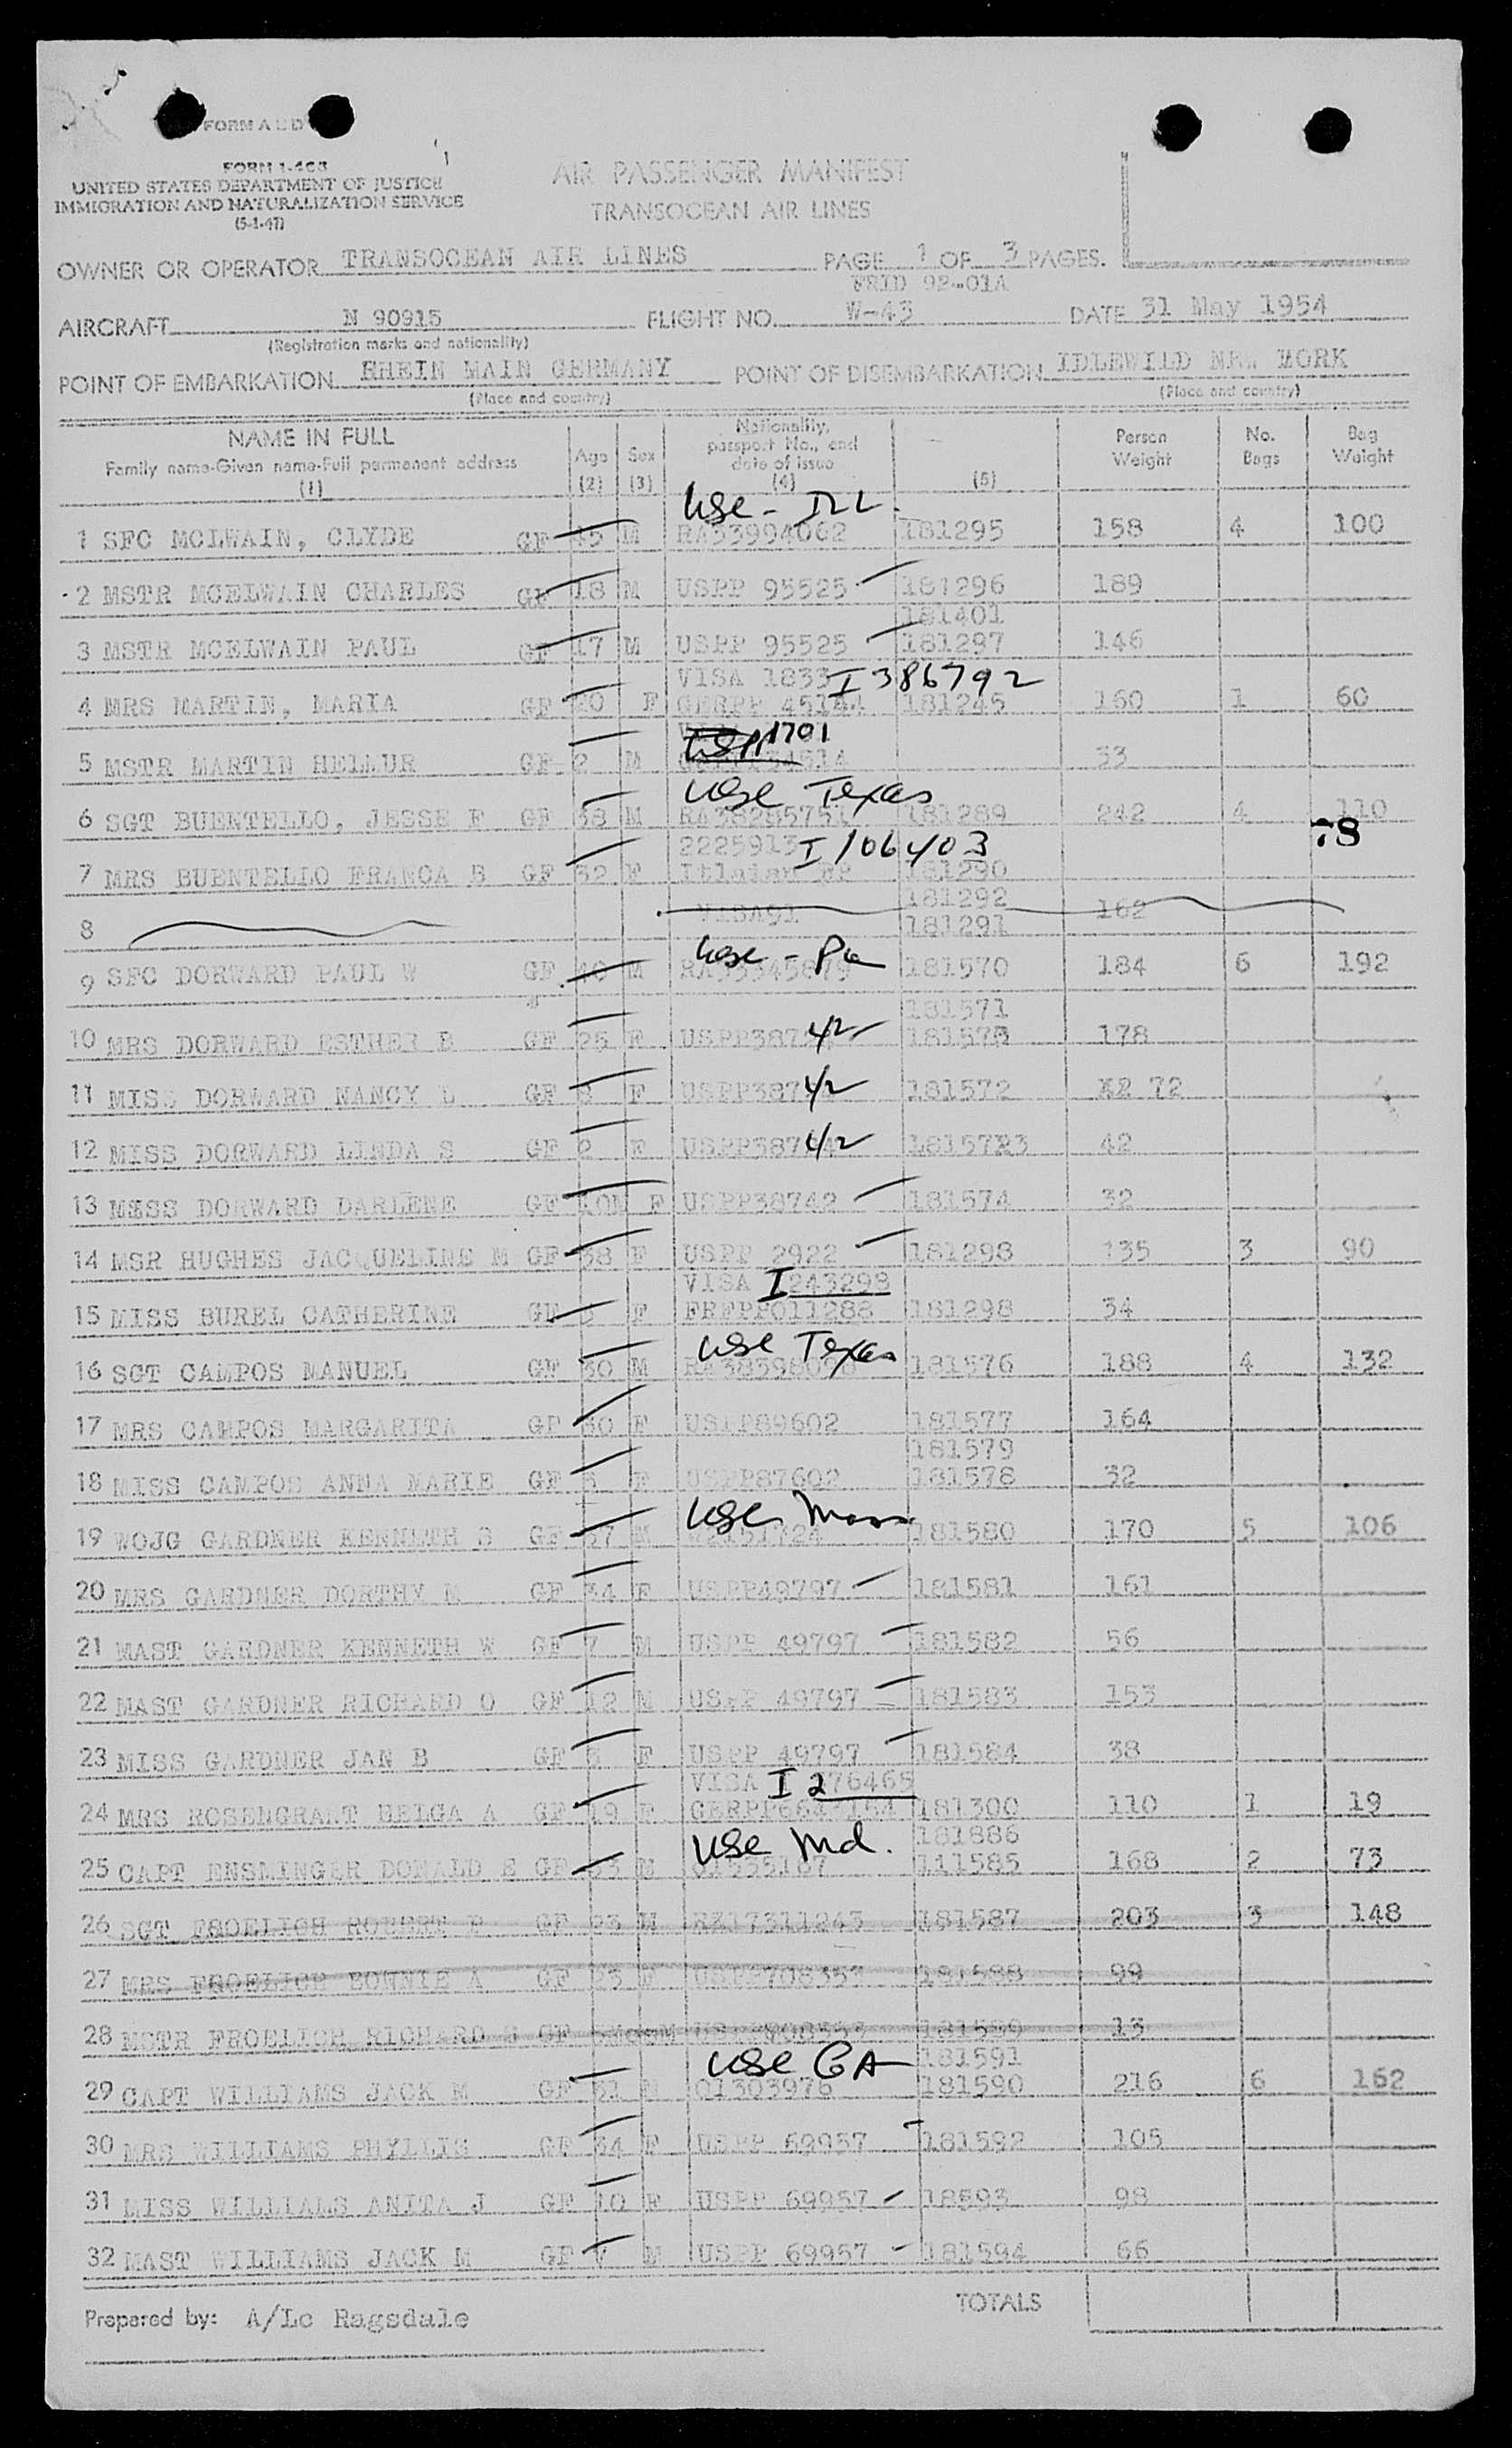 FORM A E D
FORM I-463
UNITED STATES DEPARTMENT OF JUSTICE
IMMIGRATION AND NATURALIZATION SERVICE
(5-1-47)
AIR PASSENGER MANIFEST
TRANSOCEAN AIR LINES
OWNER OR OPERATOR TRANSOCEAN AIR LINES PAGE 1 OF 3 PAGES.
FRID 92-01A
AIRCRAFT N 90915 FLIGHT NO. W-43 DATE 31 May 1954
(Registration marks and nationality)
POINT OF EMBARKATION RHEIN MAIN GERMANY POINT OF DISEMBARKATION IDLEWILD NEW MORK
(Place and country) (Place and country)
NAME IN FULL Age Sex Nationality, passport No., and date of issue Person Weight No. Bags Bag Weight
Family name-Given name-Full permanent address
(1) (2) (3) (4) (5)
USC - ILL.
1 SFC MCLWAIN, CLYDE GF 45 M RA33994062 181295 158 4 100
2 MSTR MCELWAIN CHARLES GF 18 M USPP 95525 181296 189
181401
3 MSTR MCELWAIN PAUL GF 17 M USPP 95525 181297 146
VISA 1833 I 386792
4 MRS MARTIN, MARIA GF 20 F GERPP 45144 181245 160 1 60
1701
5 MSTR MARTIN HELMUR GF 2 M 33
USC Texas
6 SGT BUENTELLO, JESSE F GF 38 M RA38285751 181289 242 4 110
78
2225913 I 106403
7 MRS BUENTELLO FRANCA B GF 32 F Itlaian PP 181290
181292
8 VISA91 181291 162
USC - Pa
9 SFC DORWARD PAUL W GF 40 M RA33345879 181570 184 6 192
181571
10 MRS DORWARD ESTHER B GF 25 F USPP38742 181575 178
11 MISS DORWARD NANCY L GF 8 F USPP38742 181572 72
12 MISS DORWARD LINDA S GF 2 F USPP38742 1815723 42
13 MISS DORWARD DARLENE GF 10M F USPP38742 181574 32
14 MSR HUGHES JACQUELINE M GF 38 F USPP 2922 181298 135 3 90
VISA I 243298
15 MISS BUREL CATHERINE GF F FRFPP011288 181298 34
USC Texas
16 SGT CAMPOS MANUEL GF 30 M 181576 188 4 132
17 MRS CAMPOS MARGARITA GF 30 F USPP89602 181577 164
181579
18 MISS CAMPOS ANNA MARIE GF 3 F USPP87602 181578 32
USC Mass
19 WOJG GARDNER KENNETH S GF 37 M W2151724 181580 170 5 106
20 MRS GARDNER DORTHY M GF 34 F USPP49797 181581 161
21 MAST GARDNER KENNETH W GF 7 M USPP 49797 181582 56
22 MAST GARDNER RICHARD O GF 12 M USPP 49797 181583 153
23 MISS GARDNER JAN B GF 3 F USPP 49797 181584 38
VISA I 276465
24 MRS ROSENGRANT HELGA A GF 19 F GERPP6643154 181300 110 1 19
USC Md. 181886
25 CAPT ENSMINGER DONALD E GF 33 M O1535187 111585 168 2 73
26 SGT FROELICH ROBERT P GF 23 M RA17311243 181587 203 3 148
27 MRS FROELICH BONNIE A GF 23 F USPP708353 181588 99
28 MSTR FROELICH RICHARD GF M 181589 13
USC GA 181591
29 CAPT WILLIAMS JACK M GF 31 M O1303976 181590 216 6 162
30 MRS WILLIAMS PHYLLIS GF 34 F USPP 69957 181592 105
31 MISS WILLIAMS ANITA J GF 10 F USPP 69957 18593 98
32 MAST WILLIAMS JACK M GF 7 M USPP 69957 181594 66
TOTALS
Prepared by: A/Lc Ragsdale